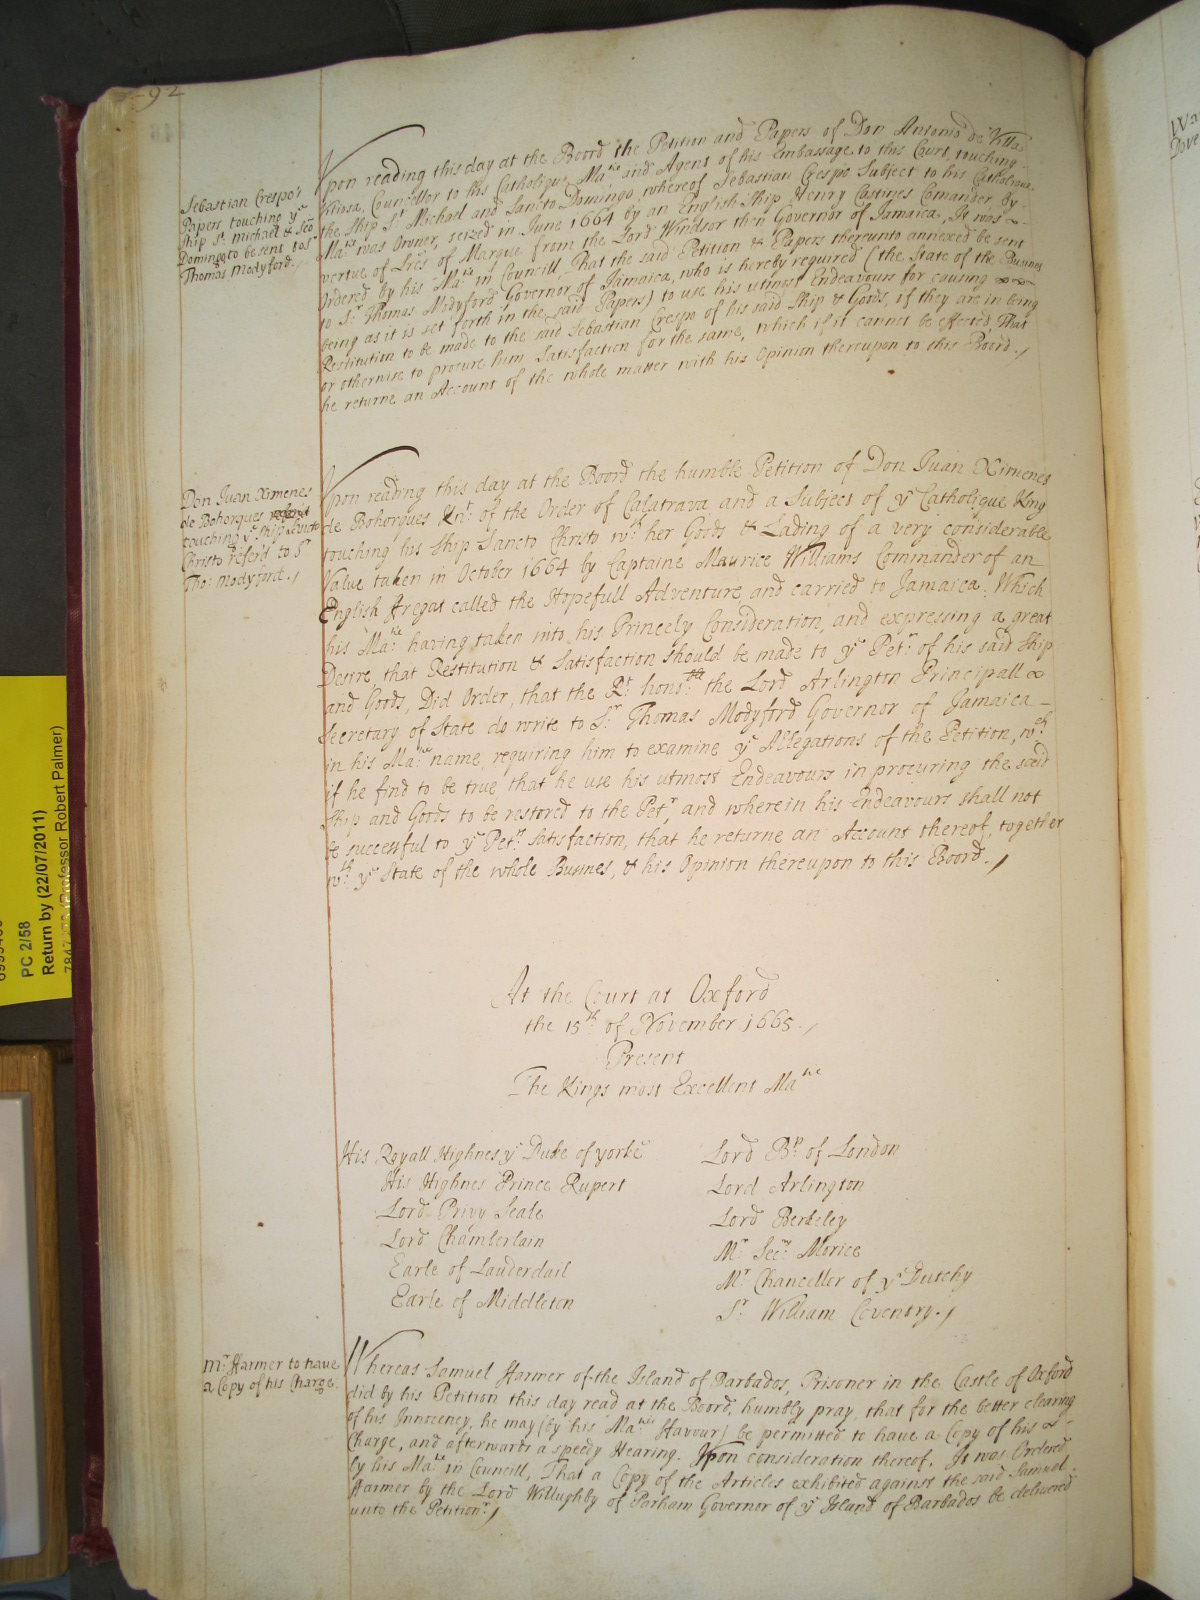 92
Sebastian Crespo's
Papers touching ye
Ship St. Michael & Sto
Domingo to be sent to Sr
Thomas Modyford./
Upon reading this day at the Boord the Petition and Papers of Don Antonio de Villa
Viliosa, Councellor to his Catholique Matie and Agent of his Embassage to this Court, touching
the Ship St Michael and Sancto Domingo, whereof Sebastian Crespo Subject to his Catholique
Matie was Owner, seized in June 1664 by an English Ship Henry Castines Comander, by
vertue of Lres of Marque from the Lord Windsor then Governor of Jamaica. It was
Ordered by his Matie in Councill, That the said Petition & Papers thereunto annexed be sent
to Sr. Thomas Modyford Governor of Jamaica, who is hereby required (the State of the Busines
being as it is set forth in the said Papers) to use his utmost Endeavours for causing
Restitution to be made to the said Sebastian Crespo of his said Ship & Goods, if they are in being
or otherwise to procure him Satisfaction for the same, which if it cannot be effected, That
he returne an Account of the whole matter with his Opinion thereupon to this Boord./
Don Juan Ximenes
de Bohorques referrd
touching ye Ship Sancto
Christo refer'd to Sr
Tho: Modyford./
Upon reading this day at the Boord the humble Petition of Don Juan Ximenes
de Bohorques Knt. of the Order of Calatrava and a Subject of ye Catholique King
touching his Ship Sancto Christo wth her Goods & Lading of a very considerable
Value taken in October 1664 by Captaine Maurice Williams Commander of an
English Fregat called the Hopefull Adventure and carried to Jamaica; Which
his Matie having taken into his Princely Consideration, and expressing a great
Desire, that Restitution & Satisfaction should be made to ye Petr. of his said Ship
and Goods, Did Order, that the Rt. honoble the Lord Arlington Principall
Secretary of State do write to Sr. Thomas Modyford Governor of Jamaica
in his Maties name, requiring him to examine ye Allegations of the Petition, wch.
if he find to be true, that he use his utmost Endeavours in procuring the said
Ship and Goods to be restored to the Petr, and wherein his Endeavours shall not
be successful to ye Petrs Satisfaction, that he returne an Account thereof, together
wth. ye State of the whole Busines, & his Opinion thereupon to this Boord./
At the Court at Oxford
the 15th of November 1665./
Present
The Kings most Excellent Matie
His Royall Highnes ye Duke of Yorke
His Highnes Prince Rupert
Lord Privy Seale
Lord Chamberlain
Earle of Lauderdail
Earle of Middleton
Lord Bp of London
Lord Arlington
Lord Berkeley
Mr. Secry. Morice
Mr. Chanceller of ye Dutchy
Sr. William Coventry./
Mr. Farmer to have
a Copy of his Charge.
Whereas Samuel Farmer of the Island of Barbados, Prisoner in the Castle of Oxford
did by his Petition this day read at the Boord, humbly pray, that for the better clearing
of his Innocency, he may (by his Maties Favour) be permitted to have a Copy of his
Charge, and afterwarts a speedy Hearing. Upon consideration thereof, It was Ordered
by his Matie in Councill, That a Copy of the Articles exhibited against the said Samuel
Farmer by the Lord Willughby of Parham Governor of ye Island of Barbados be delivered
unto the Petitionr./
PC 2/58
Return by (22/07/2011)
(Professor Robert Palmer)